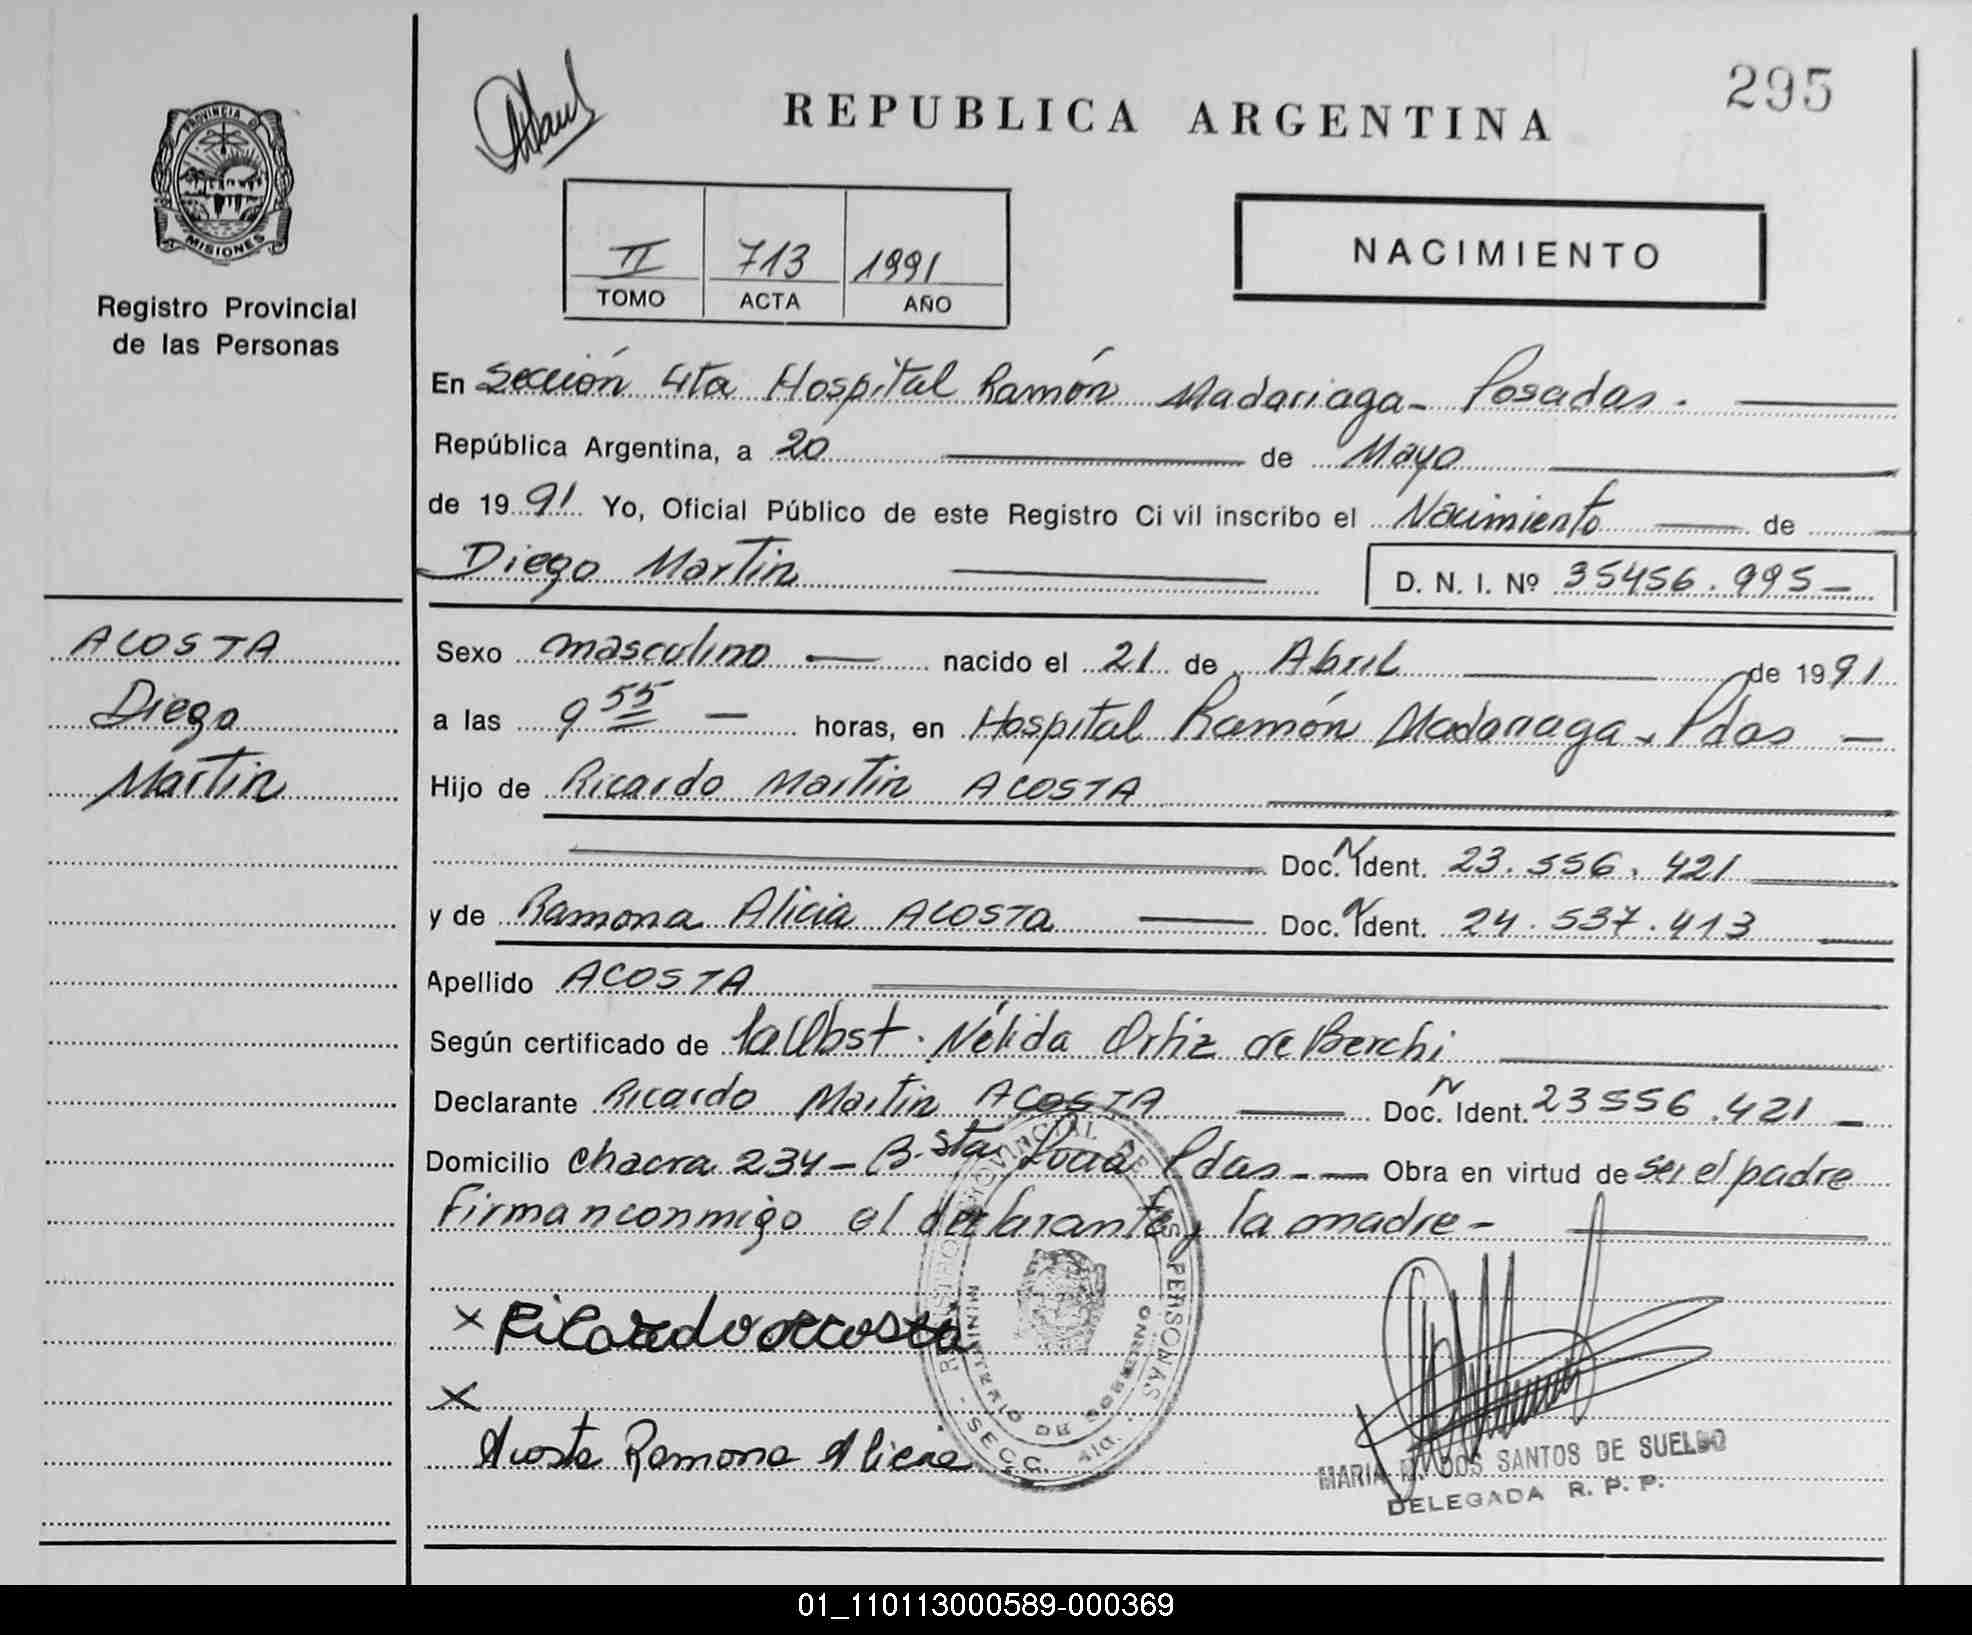 295
REPUBLICA ARGENTINA
PROVINCIA DE
MISIONES
Registro Provincial
de las Personas
II 713 1991
TOMO ACTA AÑO
NACIMIENTO
En Sección 4ta Hospital Ramón Madariaga - Posadas.
República Argentina, a 20 de Mayo
de 1991 Yo, Oficial Público de este Registro Civil inscribo el Nacimiento de
Diego Martin D. N. I. Nº 35456.995-
ACOSTA
Diego
Martin
Sexo masculino nacido el 21 de Abril de 1991
a las 9 55 horas, en Hospital Ramón Madariaga - Pdas
Hijo de Ricardo Martin ACOSTA
Doc. N Ident. 23.556.421
y de Ramona Alicia ACOSTA Doc. N Ident. 24.537.413
Apellido ACOSTA
Según certificado de la Obst. Nélida Ortiz de Berchi
Declarante Ricardo Martin ACOSTA Doc. N Ident. 23556.421
Domicilio chacra 234 - B. Sta Lucia Pdas - Obra en virtud de ser el padre
Firman conmigo el declarante y la madre -
x Ricardo Accosta
x
Acosta Ramona Alicia
REGISTRO PROVINCIAL DE LAS PERSONAS
MINISTERIO DE GOBIERNO
- SECC. 4ta. -
MARIA DOS SANTOS DE SUELDO
DELEGADA R. P. P.
01_110113000589-000369